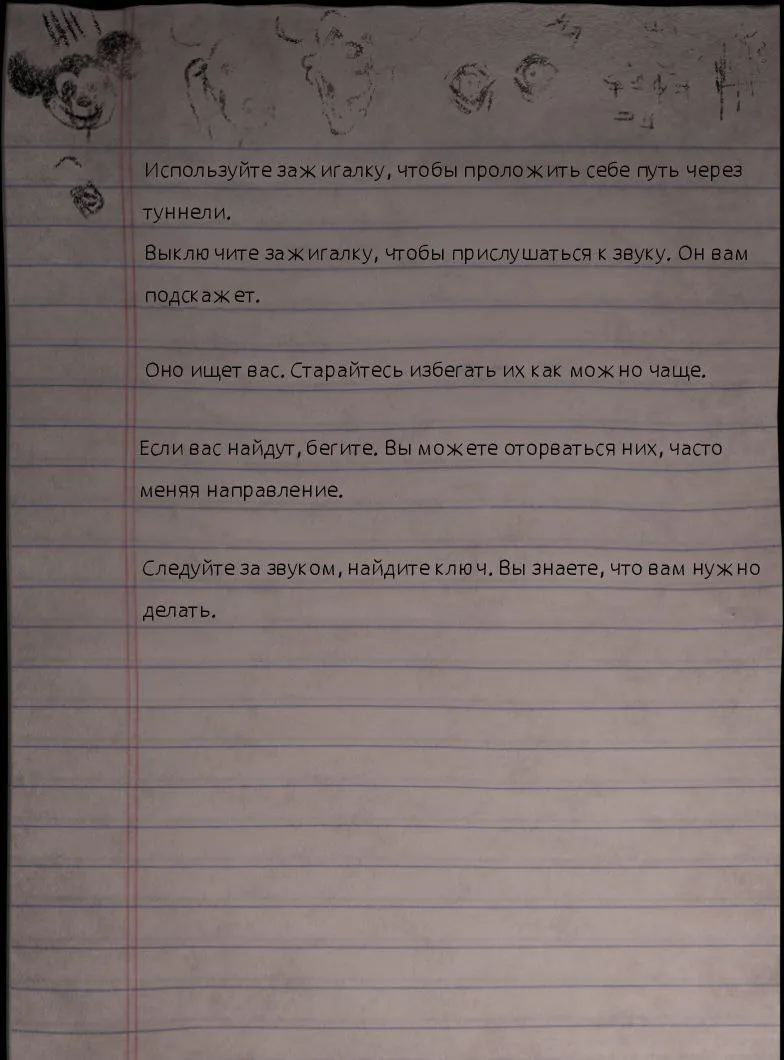 Используйте зажигалку, чтобы проложить себе путь через
туннели.
Выключите зажигалку, чтобы прислушаться к звуку. Он вам
подскажет.
Оно ищет вас. Старайтесь избегать их как можно чаще.
Если вас найдут, бегите. Вы можете оторваться них, часто
меняя направление.
Следуйте за звуком, найдите ключ. Вы знаете, что вам нужно
делать.